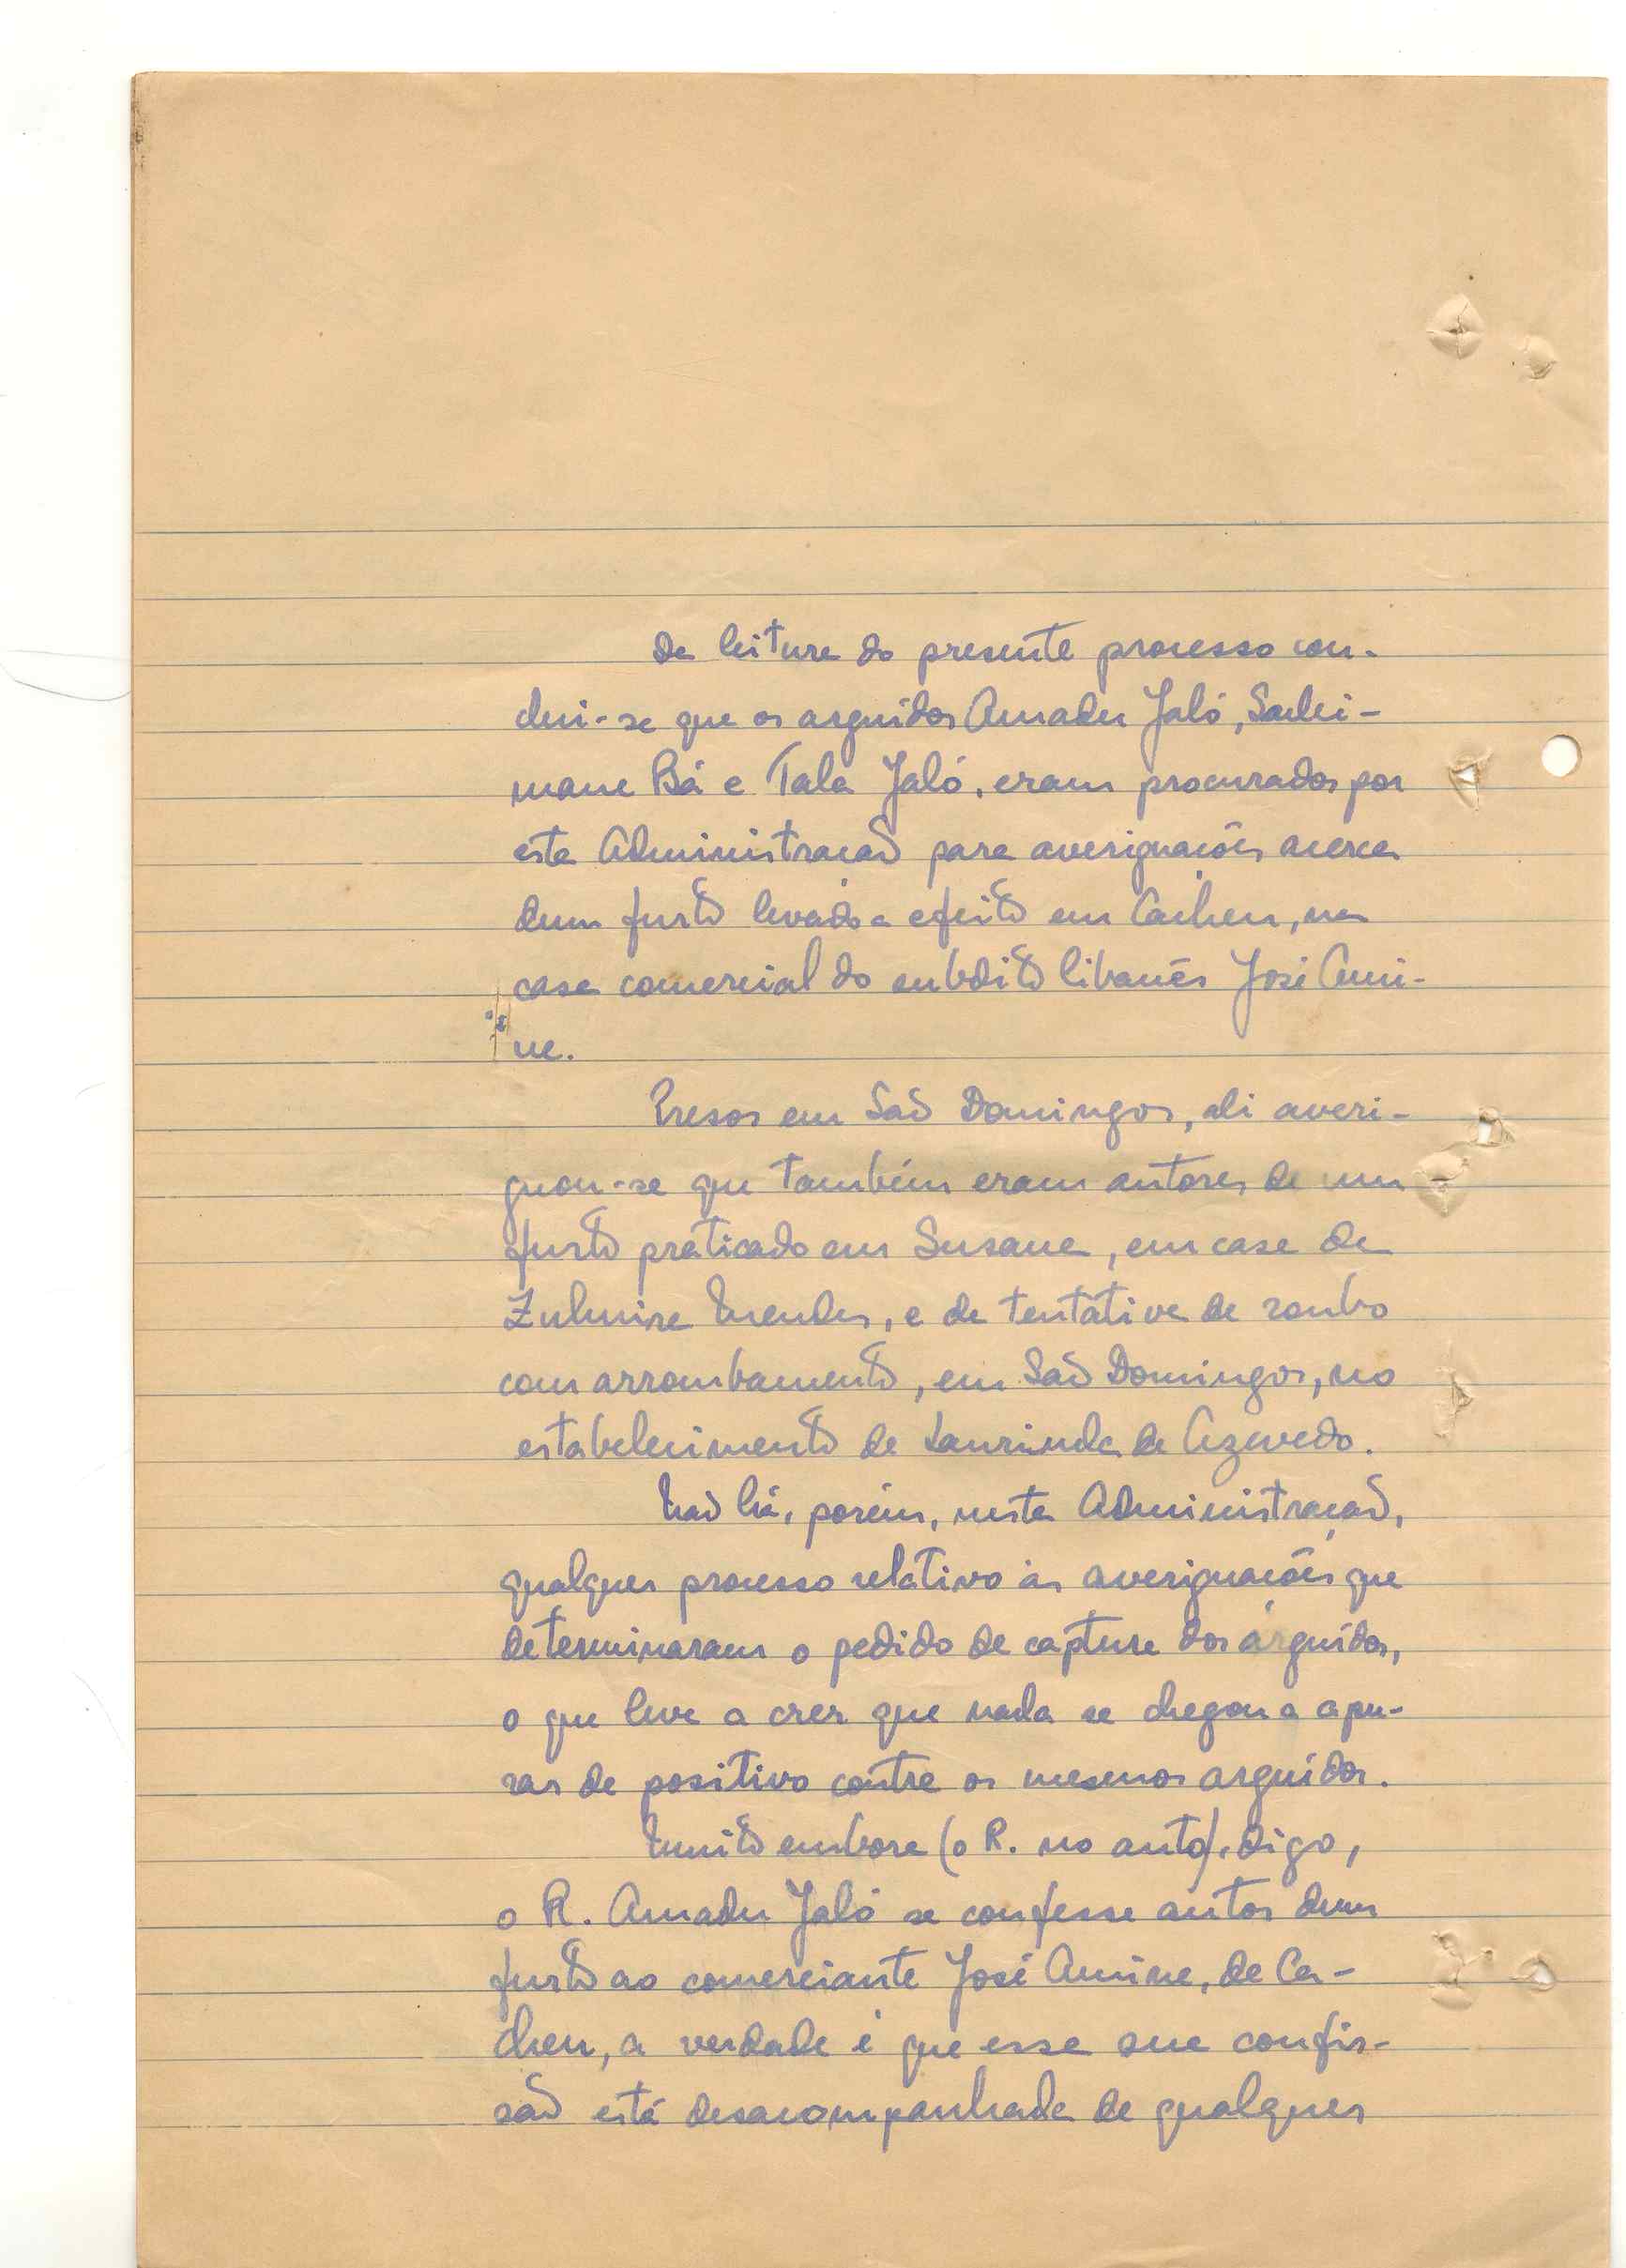 Da leitura do presente processo con-
clui-se que os arguidos Amadu Jaló, Sulei-
mane Bá e Tala Jaló, eram procurados por
esta Administração para averiguações acerca
dum furto levado a efeito em Cacheu, na
casa comercial do subdito libanês José Ami-
ne.
Presos em São Domingos, ali averi-
guou-se que também eram autores de um
furto praticado em Susana, em casa de
Zulmira Mendes, e de tentativa de roubo
com arrombamento, em São Domingos, no
estabelecimento de Laurinda de Azevedo.
Não há, porém, nesta Administração,
qualquer processo relativo às averiguações que
determinaram o pedido de captura dos arguidos,
o que leva a crer que nada se chegou a apu-
rar de positivo contra os mesmos arguidos.
Muito embora (o R. no auto), digo,
o R. Amadu Jaló se confesse autor dum
furto ao comerciante José Amine, de Ca-
cheu, a verdade é que essa sua confis-
são está desacompanhada de qualquer